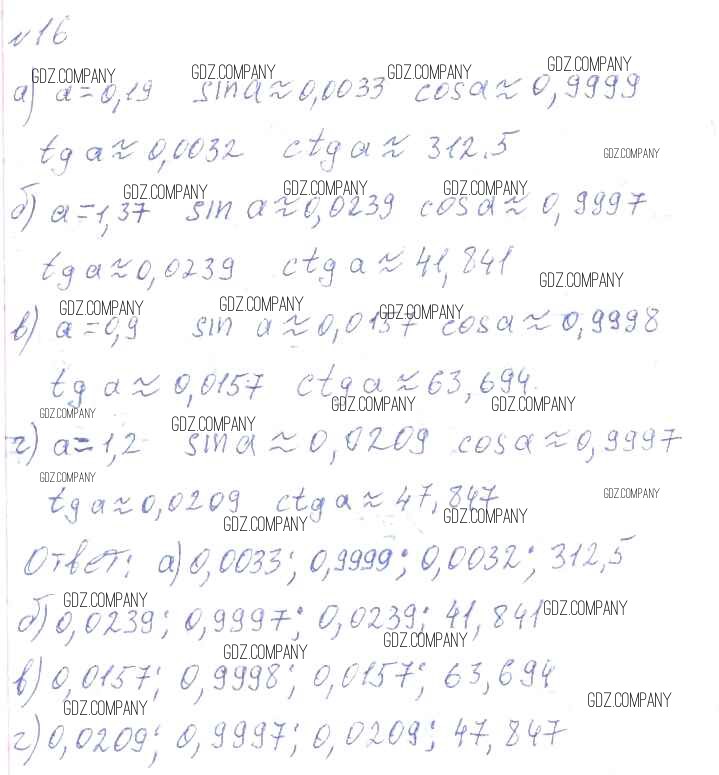 №16
GDZ.COMPANY GDZ.COMPANY GDZ.COMPANY GDZ.COMPANY
а) a=0,19 sin a≈0,0033 cos a≈ 0,9999
tg a≈ 0,0032 ctg a≈ 312.5 GDZ.COMPANY
GDZ.COMPANY GDZ.COMPANY GDZ.COMPANY
б) a=1,37 sin a≈0,0239 cos a≈ 0,9997
tg a≈0,0239 ctg a≈ 41,841
GDZ.COMPANY
GDZ.COMPANY GDZ.COMPANY GDZ.COMPANY
в) a=0,9 sin a≈0,0157 cos a≈0,9998
tg a≈ 0,0157 ctg a≈63,694
GDZ.COMPANY GDZ.COMPANY GDZ.COMPANY GDZ.COMPANY
г) a=1,2 sin a≈0,0209 cos a≈0,9997
GDZ.COMPANY GDZ.COMPANY
tg a≈0,0209 ctg a≈ 47,847
GDZ.COMPANY GDZ.COMPANY
Ответ: а) 0,0033; 0,9999; 0,0032; 312,5
GDZ.COMPANY GDZ.COMPANY
б) 0,0239; 0,9997; 0,0239; 41,841
GDZ.COMPANY GDZ.COMPANY
в) 0,0157; 0,9998; 0,0157; 63,694
GDZ.COMPANY GDZ.COMPANY
г) 0,0209; 0,9997; 0,0209; 47,847